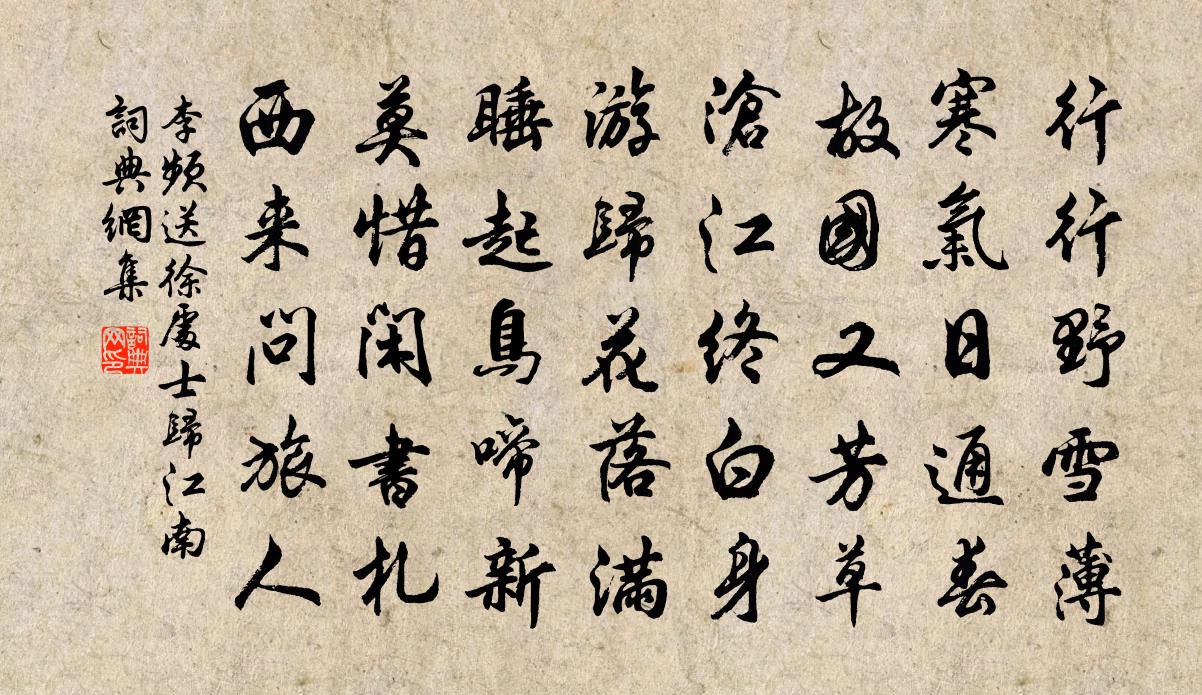 行行野雪薄
寒氣日通春
故國又芳草
滄江終白身
游歸花落滿
睡起鳥啼新
莫惜閑書札
西来問旅人
李頻送徐處士歸江南
詞典網集
詞典网印